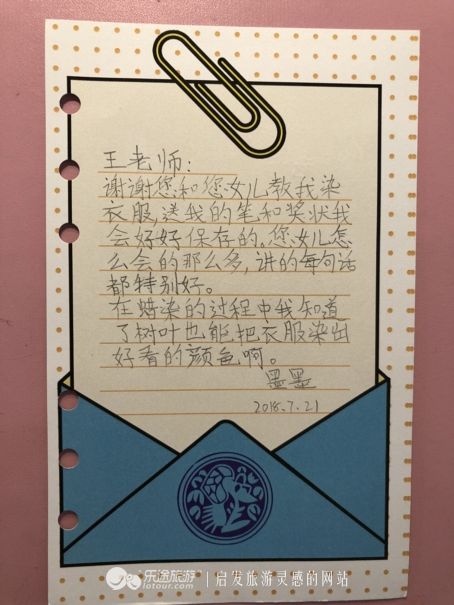 王老师：
谢谢您和您女儿教我染
衣服,送我的笔和奖状我
会好好保存的。您女儿怎
么会的那么多,讲的每句话
都特别好。
在蜡染的过程中我知道
了树叶也能把衣服染出
好看的颜色啊。
墨墨
2018.7.21
乐途旅游
lotour.com
启发旅游灵感的网站